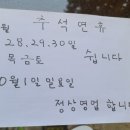 추석연휴
월
28.29.30일
목금토 쉽니다
0월1일일요일
정상영업합니다